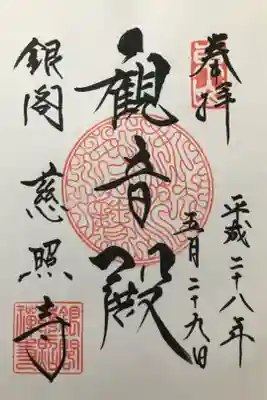 奉拝
平成二十八年
五月二十九日
観音殿
銀閣
慈照寺